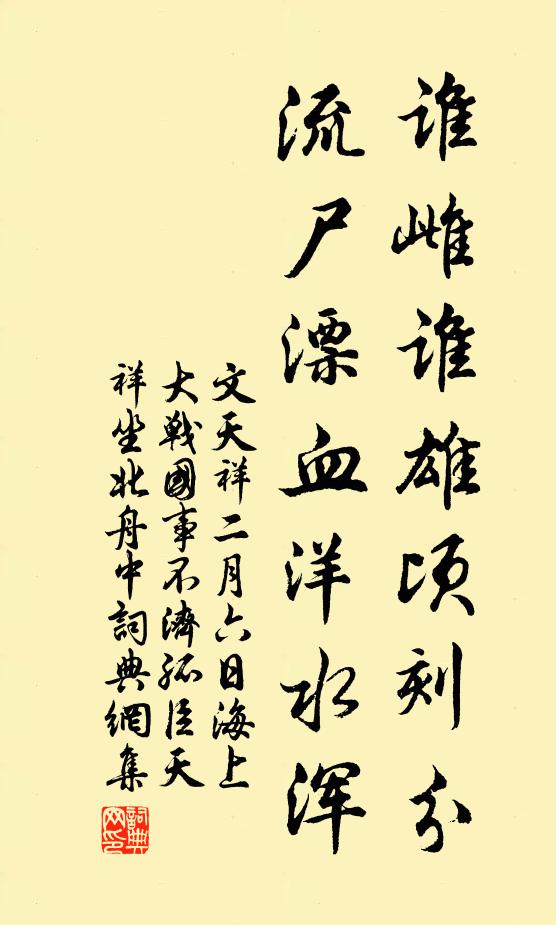 谁雌谁雄顷刻分
流尸漂血洋水浑
文天祥二月六日海上
大戰國事不濟孤臣天
祥坐北舟中詞典網集
詞典網印